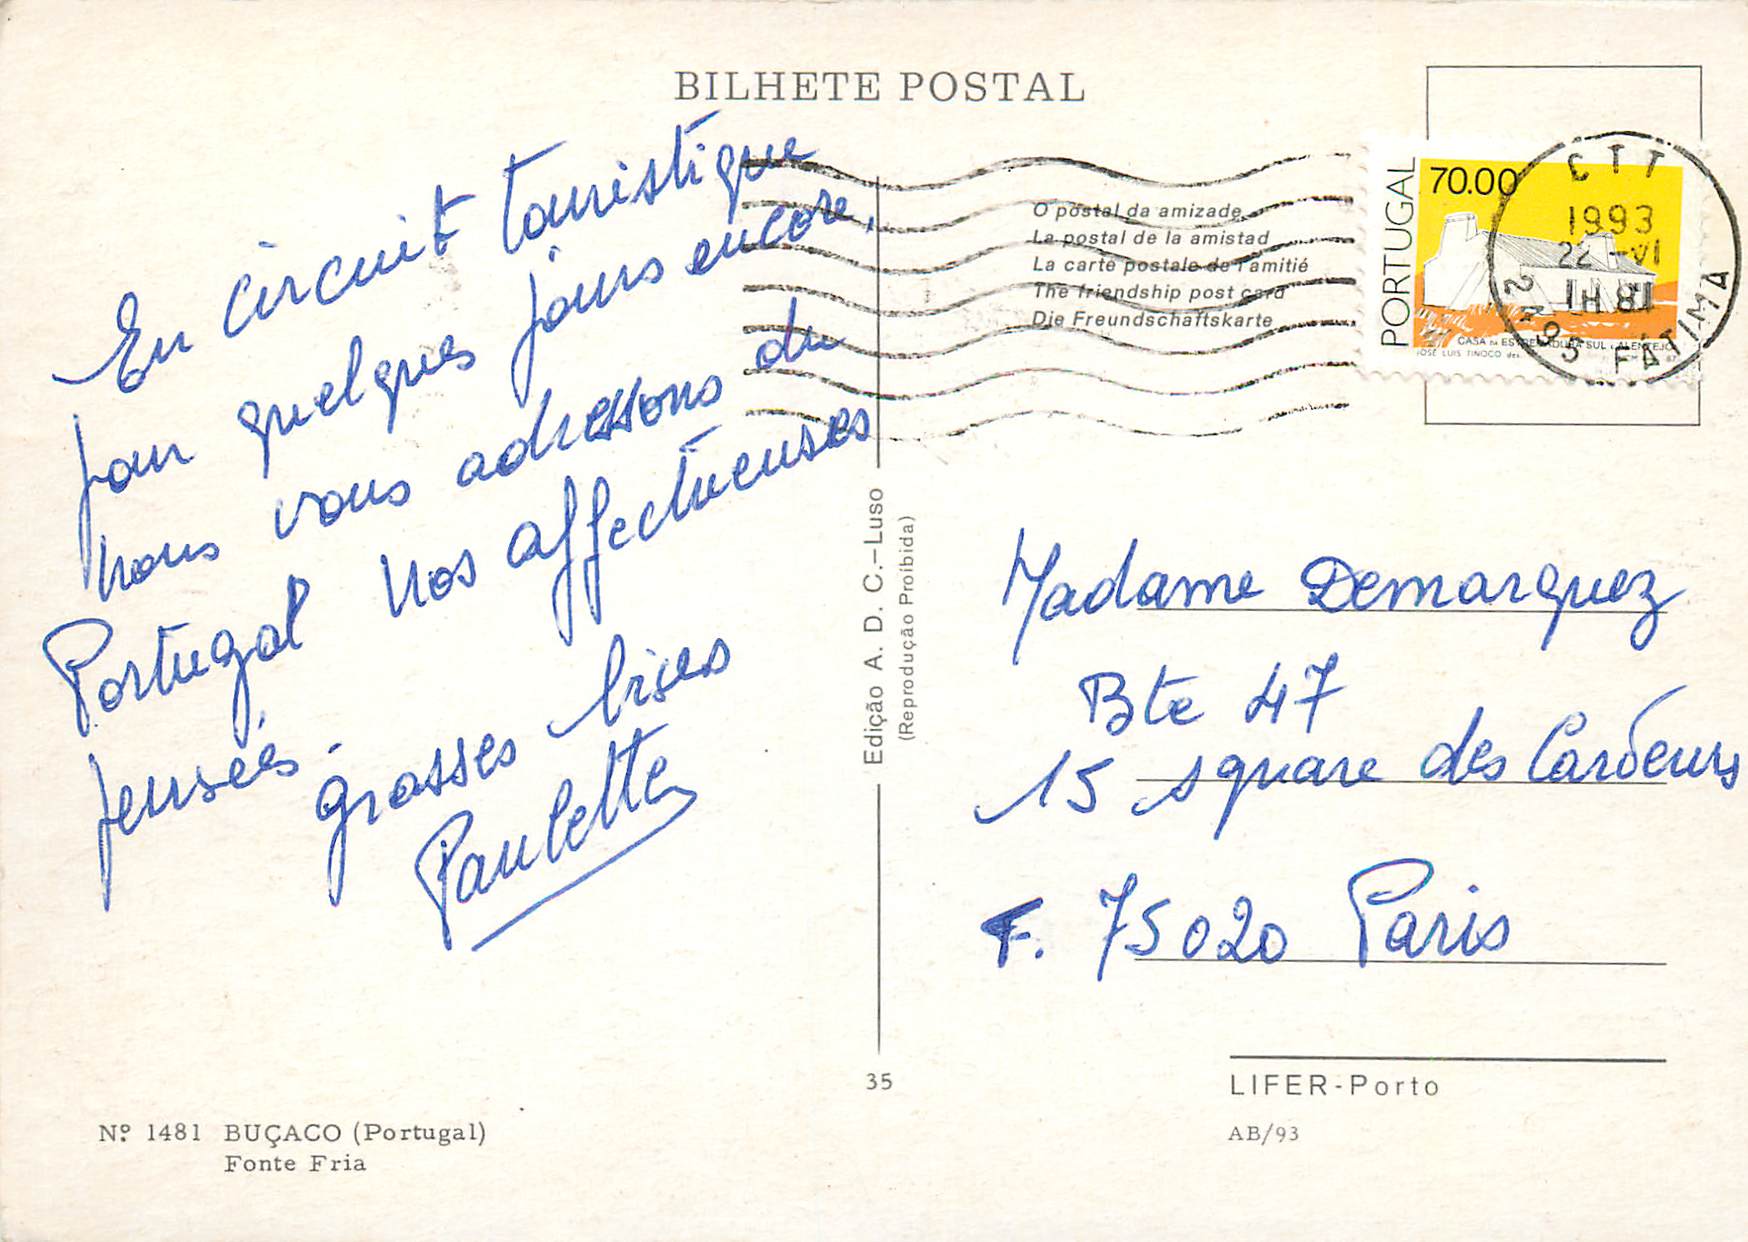 BILHETE POSTAL
En circuit touristique
pour quelques jours encore,
nous vous adressons du
Portugal nos affectueuses
pensées.
grosses bises
Paulette
Nº 1481 BUÇACO (Portugal)
Fonte Fria
Edição A. D. C.-Luso
(Reprodução Proibida)
35
O postal da amizade
La postal de la amistad
La carte postale de l'amitié
The friendship post card
Die Freundschaftskarte
PORTUGAL
70.00
CASA DA ESTREMADURA SUL E ALENTEJO
JOSÉ LUIS TINOCO des.
CTT
1993
22 -VI
2495 FÁTIMA
Madame Demarquez
Bte 47
15 square des Cardeurs
F. 75020 Paris
LIFER-Porto
AB/93